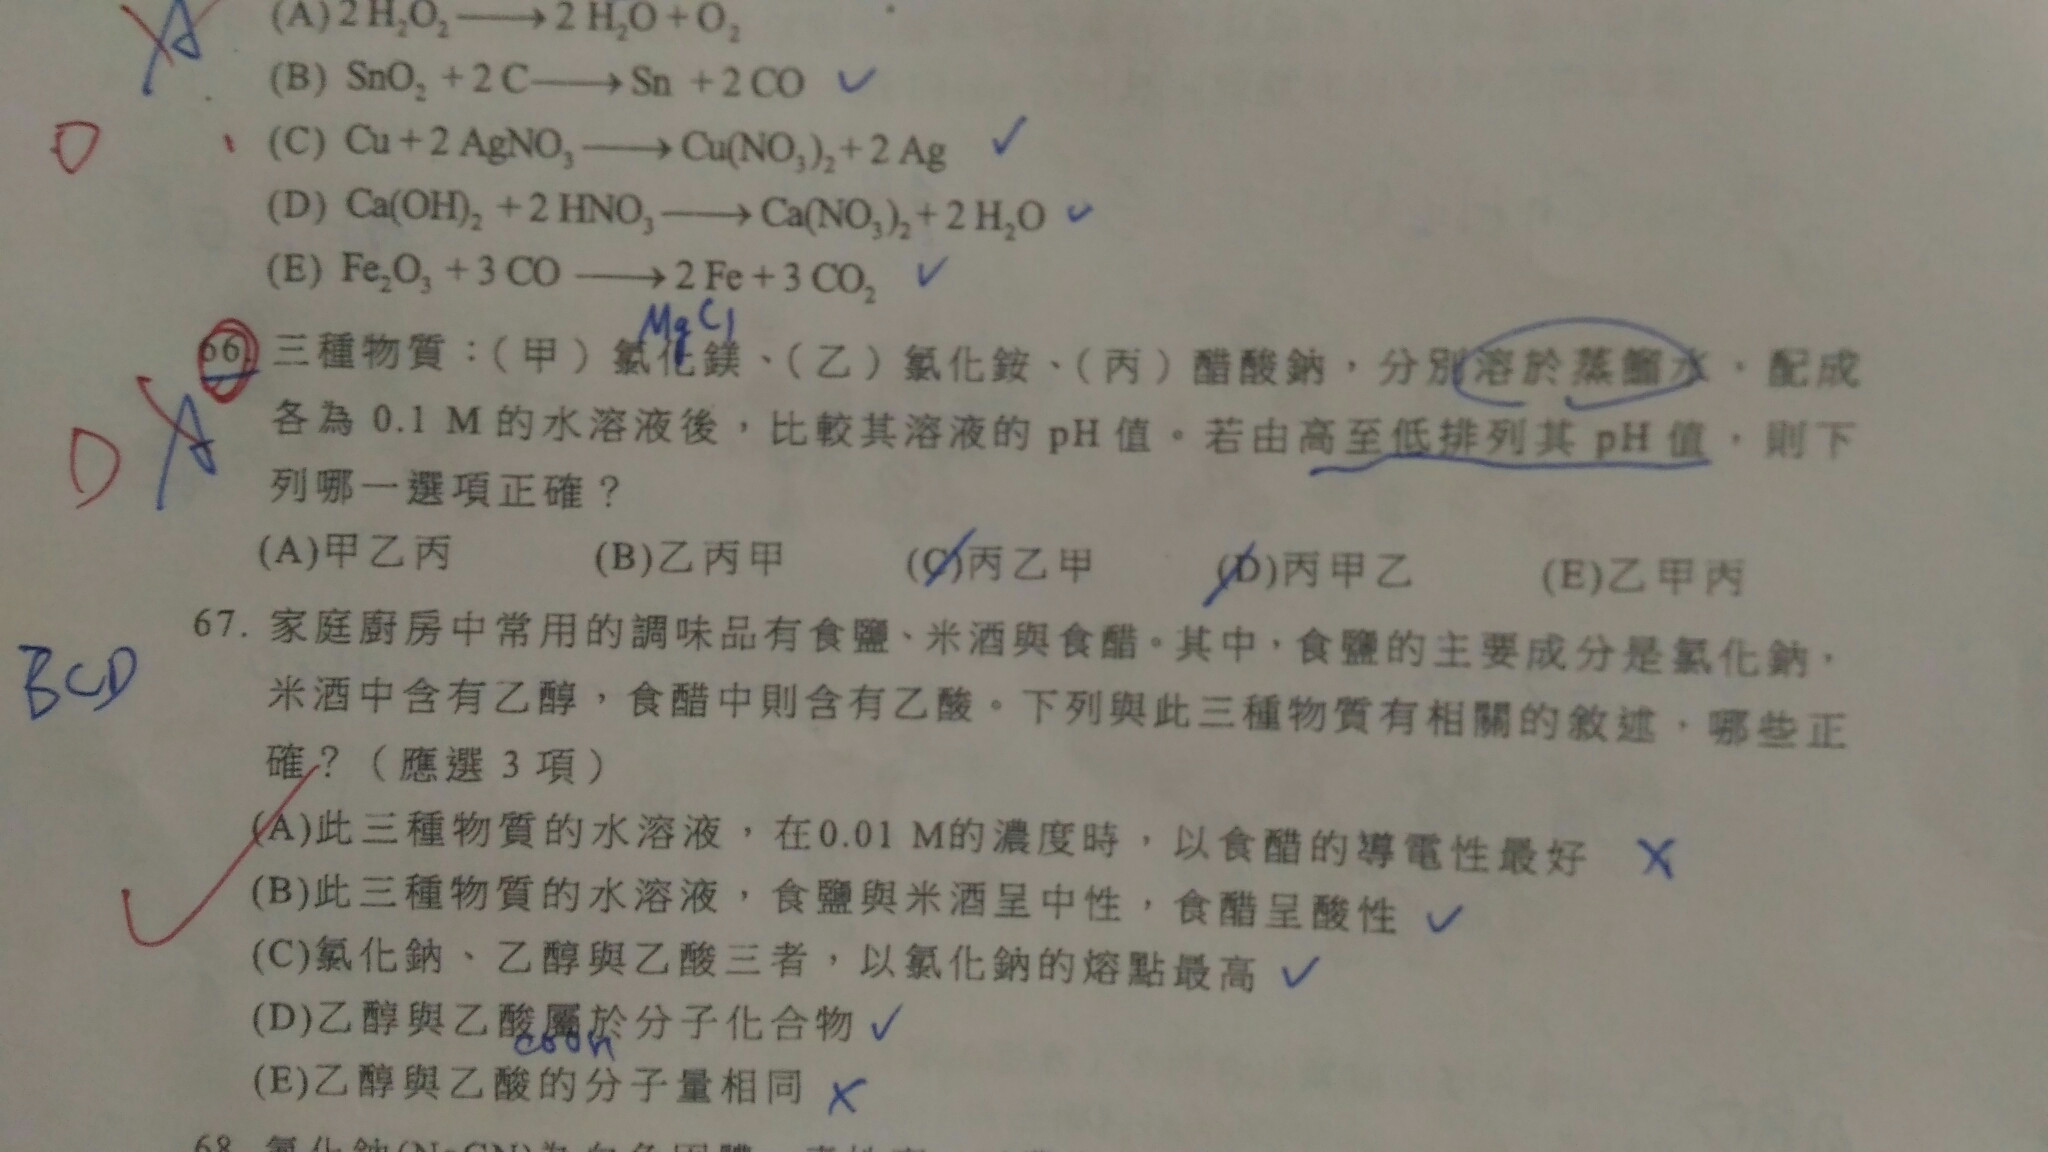 A
(A) 2 H₂O₂ ⟶ 2 H₂O + O₂
(B) SnO₂ + 2 C ⟶ Sn + 2 CO ✓
D
(C) Cu + 2 AgNO₃ ⟶ Cu(NO₃)₂ + 2 Ag ✓
(D) Ca(OH)₂ + 2 HNO₃ ⟶ Ca(NO₃)₂ + 2 H₂O ✓
(E) Fe₂O₃ + 3 CO ⟶ 2 Fe + 3 CO₂ ✓
MgCl
66. 三種物質：（甲）氯化鎂、（乙）氯化銨、（丙）醋酸鈉，分別溶於蒸餾水，配成
各為 0.1 M 的水溶液後，比較其溶液的 pH 值。若由高至低排列其 pH 值，則下
D A
列哪一選項正確？
(A)甲乙丙 (B)乙丙甲 (C)丙乙甲 (D)丙甲乙 (E)乙甲丙
67. 家庭廚房中常用的調味品有食鹽、米酒與食醋。其中，食鹽的主要成分是氯化鈉，
BCD
米酒中含有乙醇，食醋中則含有乙酸。下列與此三種物質有相關的敘述，哪些正
確？（應選 3 項）
(A)此三種物質的水溶液，在0.01 M的濃度時，以食醋的導電性最好 ✗
(B)此三種物質的水溶液，食鹽與米酒呈中性，食醋呈酸性 ✓
(C)氯化鈉、乙醇與乙酸三者，以氯化鈉的熔點最高 ✓
(D)乙醇與乙酸屬於分子化合物 ✓
(E)乙醇與乙酸的分子量相同 ✗
68. 氰化鈉(NaCN)為白色固體